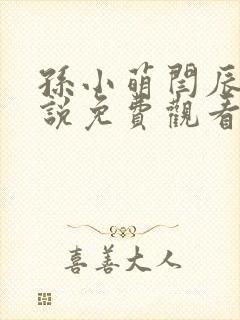 孫小萌閆辰
說免費觀看
喜善大人